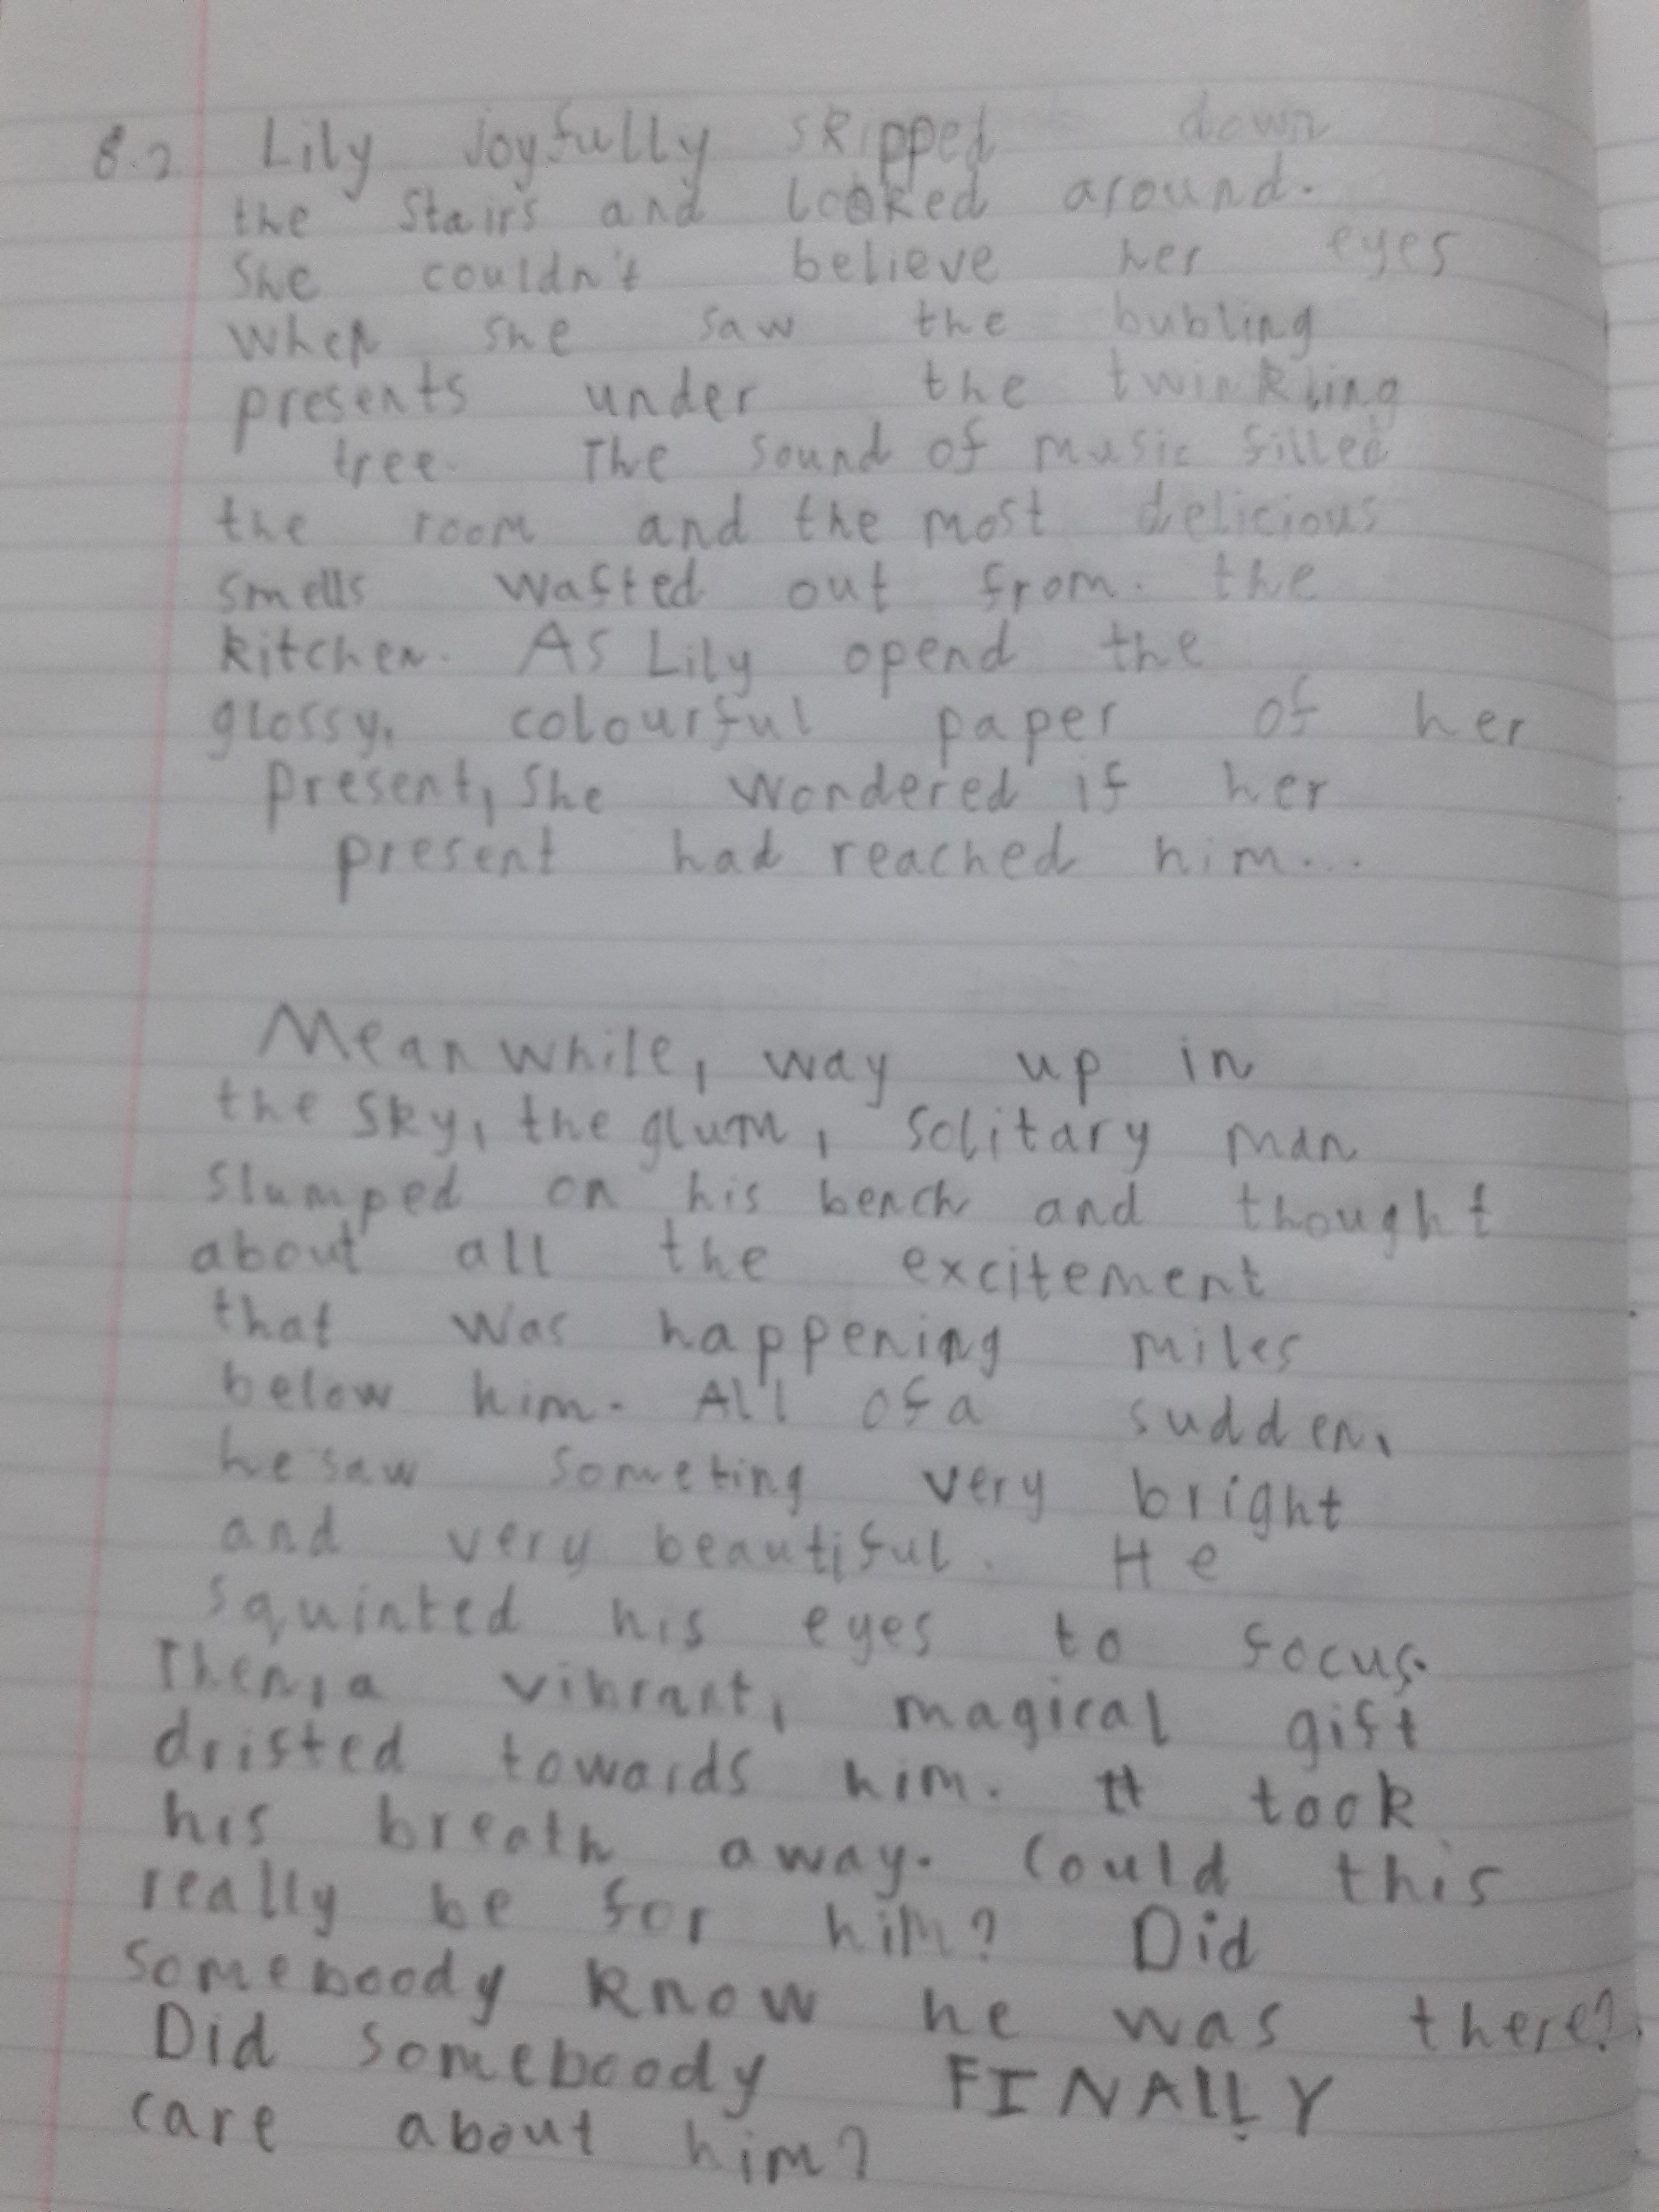 8.2 Lily joyfully skipped down
the stairs and looked around.
She couldn't believe her eyes
when she saw the bubling
presents under the twinkling
tree. The sound of music filled
the room and the most delicious
smells wafted out from. the
kitchen. As Lily opend the
glossy, colourful paper of her
present, she wondered if her
present had reached him...
Meanwhile, way up in
the sky, the glum, solitary man
slumped on his bench and thought
about all the excitement
that was happening miles
below him. All of a sudden,
he saw someting very bright
and very beautiful. He
squinted his eyes to focus.
Then, a vibrant, magical gift
drifted towards him. It took
his breath away. Could this
really be for him? Did
someboody know he was there?
Did someboody FINALLY
care about him?